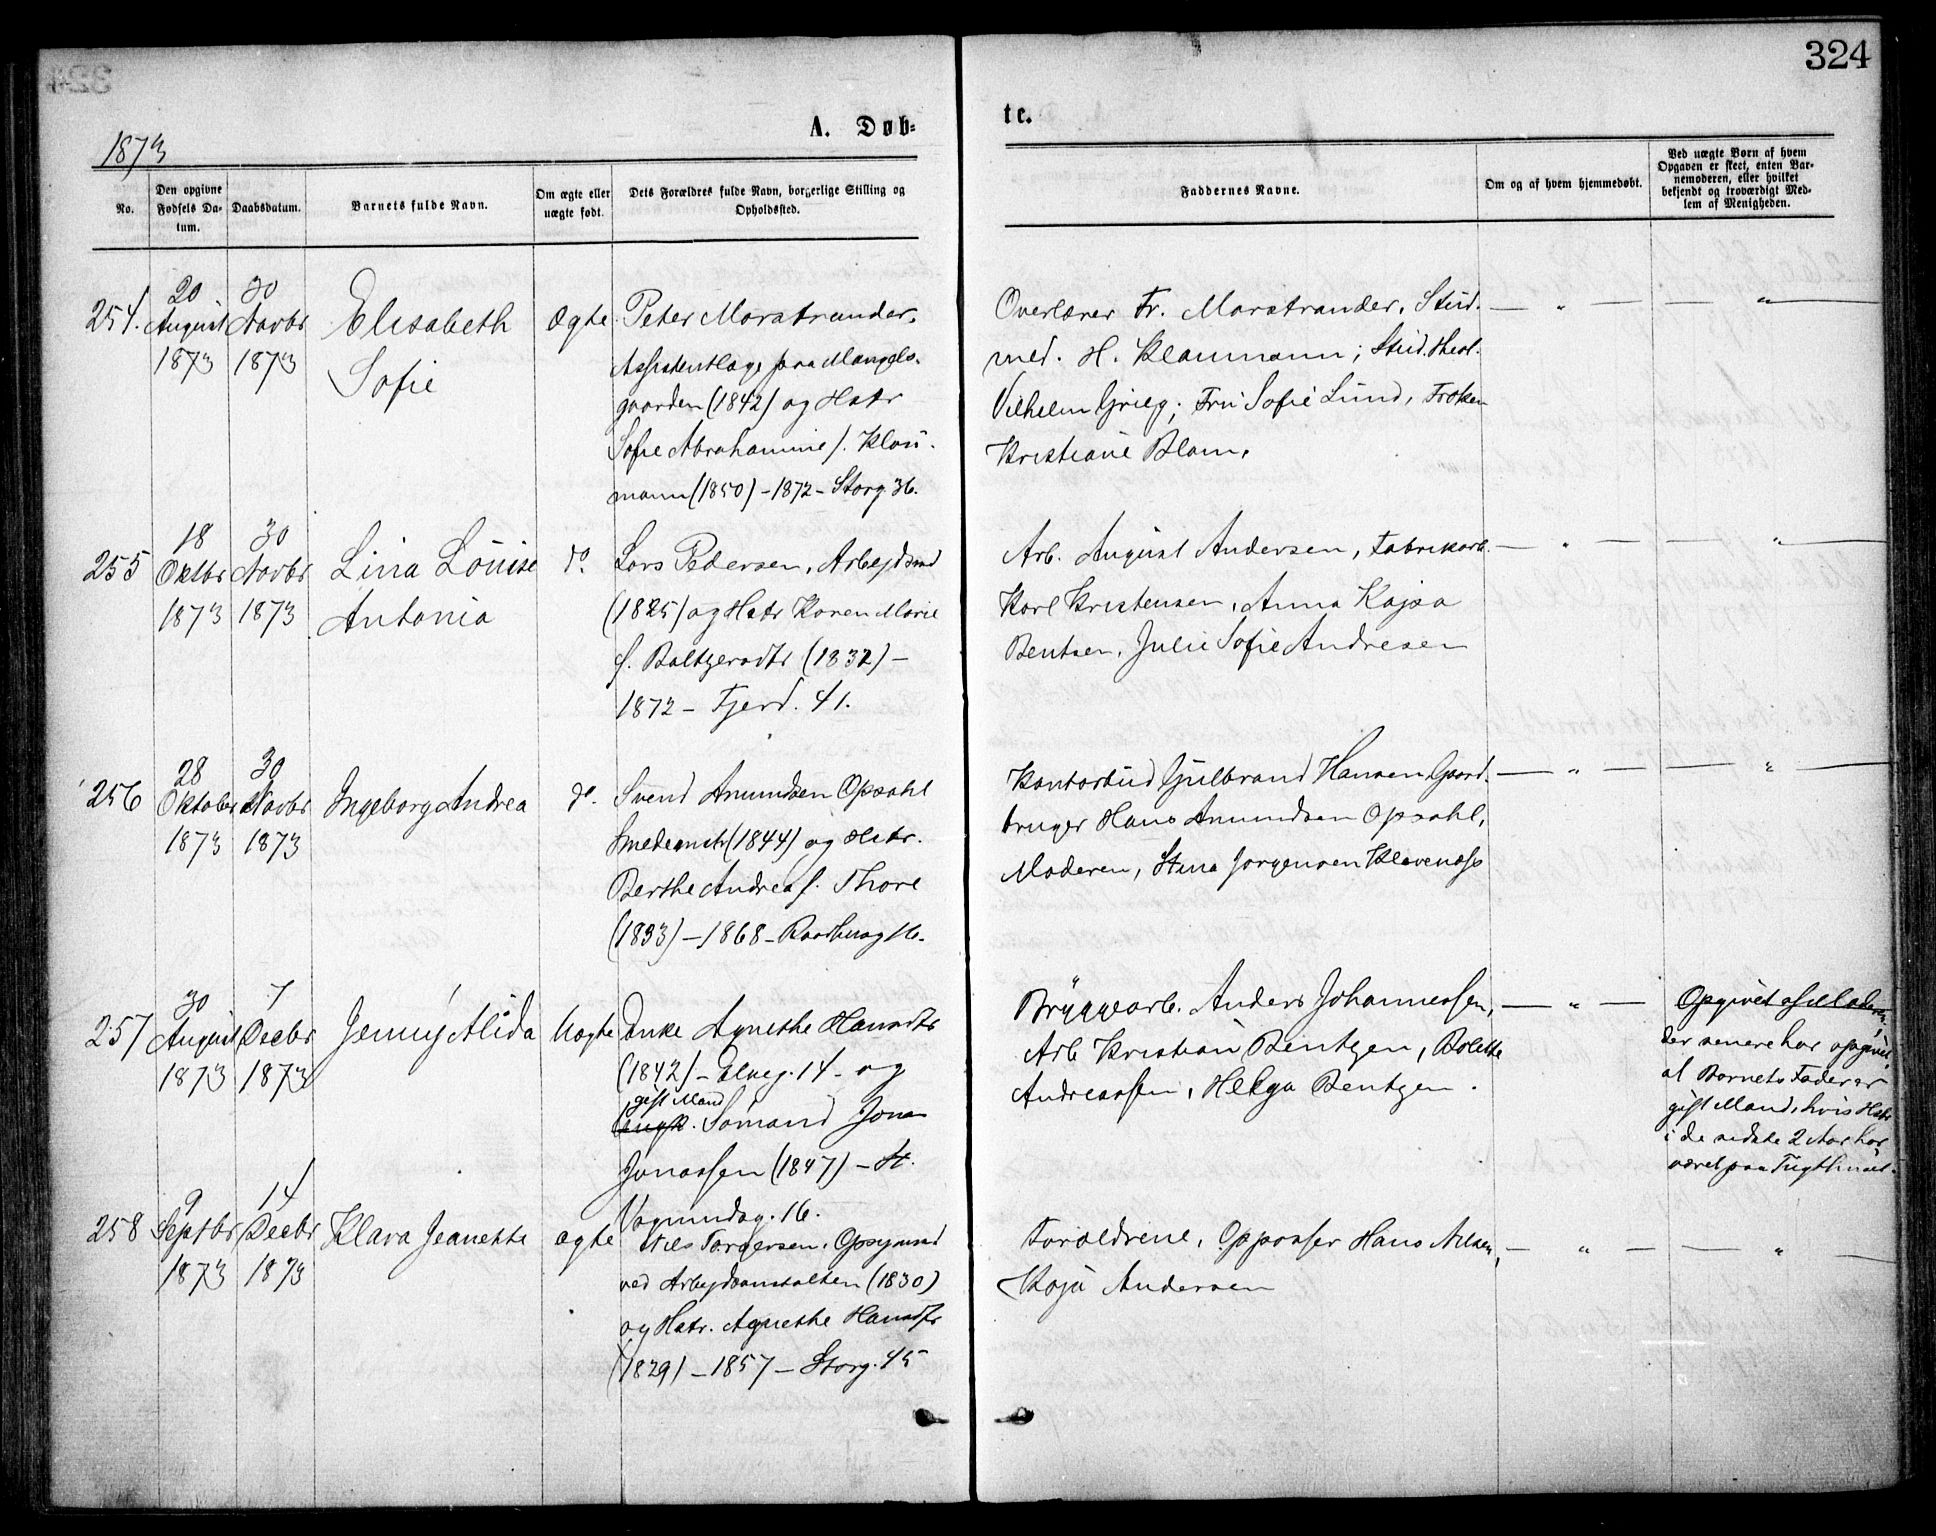 324
A. Døb=
te.
1873
No.
Den opgivne Fødsels Da-
tum.
Daabsdatum.
Barnets fulde Navn.
Om ægte eller
uægte født.
Dets Forældres fulde Navn, borgerlige Stilling og
Opholdssted.
Faddernes Navne.
Om og af hvem hjemmedøbt.
Ved uægte Børn af hvem
Opgaven er skeet, enten Bar-
nemoderen, eller hvilket
bekjendt og troværdigt Med-
lem af Menigheden.
254.
20
August
1873
30
Novbr
1873
Elisabeth
Sofie
Ægte
Peter Morstrander,
Assistentlæge paa Mangels-
gaarden (1842) og Hstr
Sofie Abrahamine f. Klou-
mann (1850) - 1872 - Storg 36.
Overlærer Fr. Morstrander, Stud.
med. H. Kloumann; Stud. theol.
Vilhelm Grieg; Fru Sofie Lund, Frøken
Kristiane Blom.
— " — — " —
255
18
Oktbr
1873
30
Novbr
1873
Lina Louise
Antonia
do.
Lars Pedersen, Arbejdsmd
(1825) og Hstr Karen Marie
f. Baltzersdtr (1832) -
1872 - Fjerd. 41.
Arb. August Andersen, Fabrikarb.
Karl Kristensen, Anna Kajsa
Bentsen, Julie Sofie Andresen
— " — — " —
256
28
Oktober
1873
30
Novbr
1873
Ingeborg Andrea
do.
Svend Amundsen Opsahl
Smedemstr (1844) og Hstr.
Berthe Andrea f. Thore
(1833) - 1868 -
Kontorbud Gulbrand Hansen, Gaard-
bruger Hans Amundsen Opsahl,
Moderen, Stina Jørgensen Klavenæss
— " — — " —
257
30
August
1873
7
Decbr
1873
Jenny Alida
Uægte
Enke Agnethe Hansdtr
(1842) - Elveg. 14 - og
gift Mand
Sømand Jonas
Jonassen (1847) - St.
Vognmdsg. 16.
Bryggearb. Anders Johannessen,
Arb Kristian Bentzen, Bolette
Andreassen, Helga Bentzen.
— " —
Opgivet af Moderen,
der senere har opgivet
at Barnets Fader er
gift Mand, hvis Hstr
i de sidste 2 Aar har
været paa Tugthuset.
258
9
Septbr
1873
14
Decbr
1873
Klara Jeanette
ægte
Nils Torgersen, Opsynsmd
ved Arbejdsanstalten (1830)
og Hstr. Agnethe Hansdtr
(1829) - 1857 - Storg. 45
Forældrene, Oppasser Hans Nilsen,
Kaja Andersen
— " — — " —